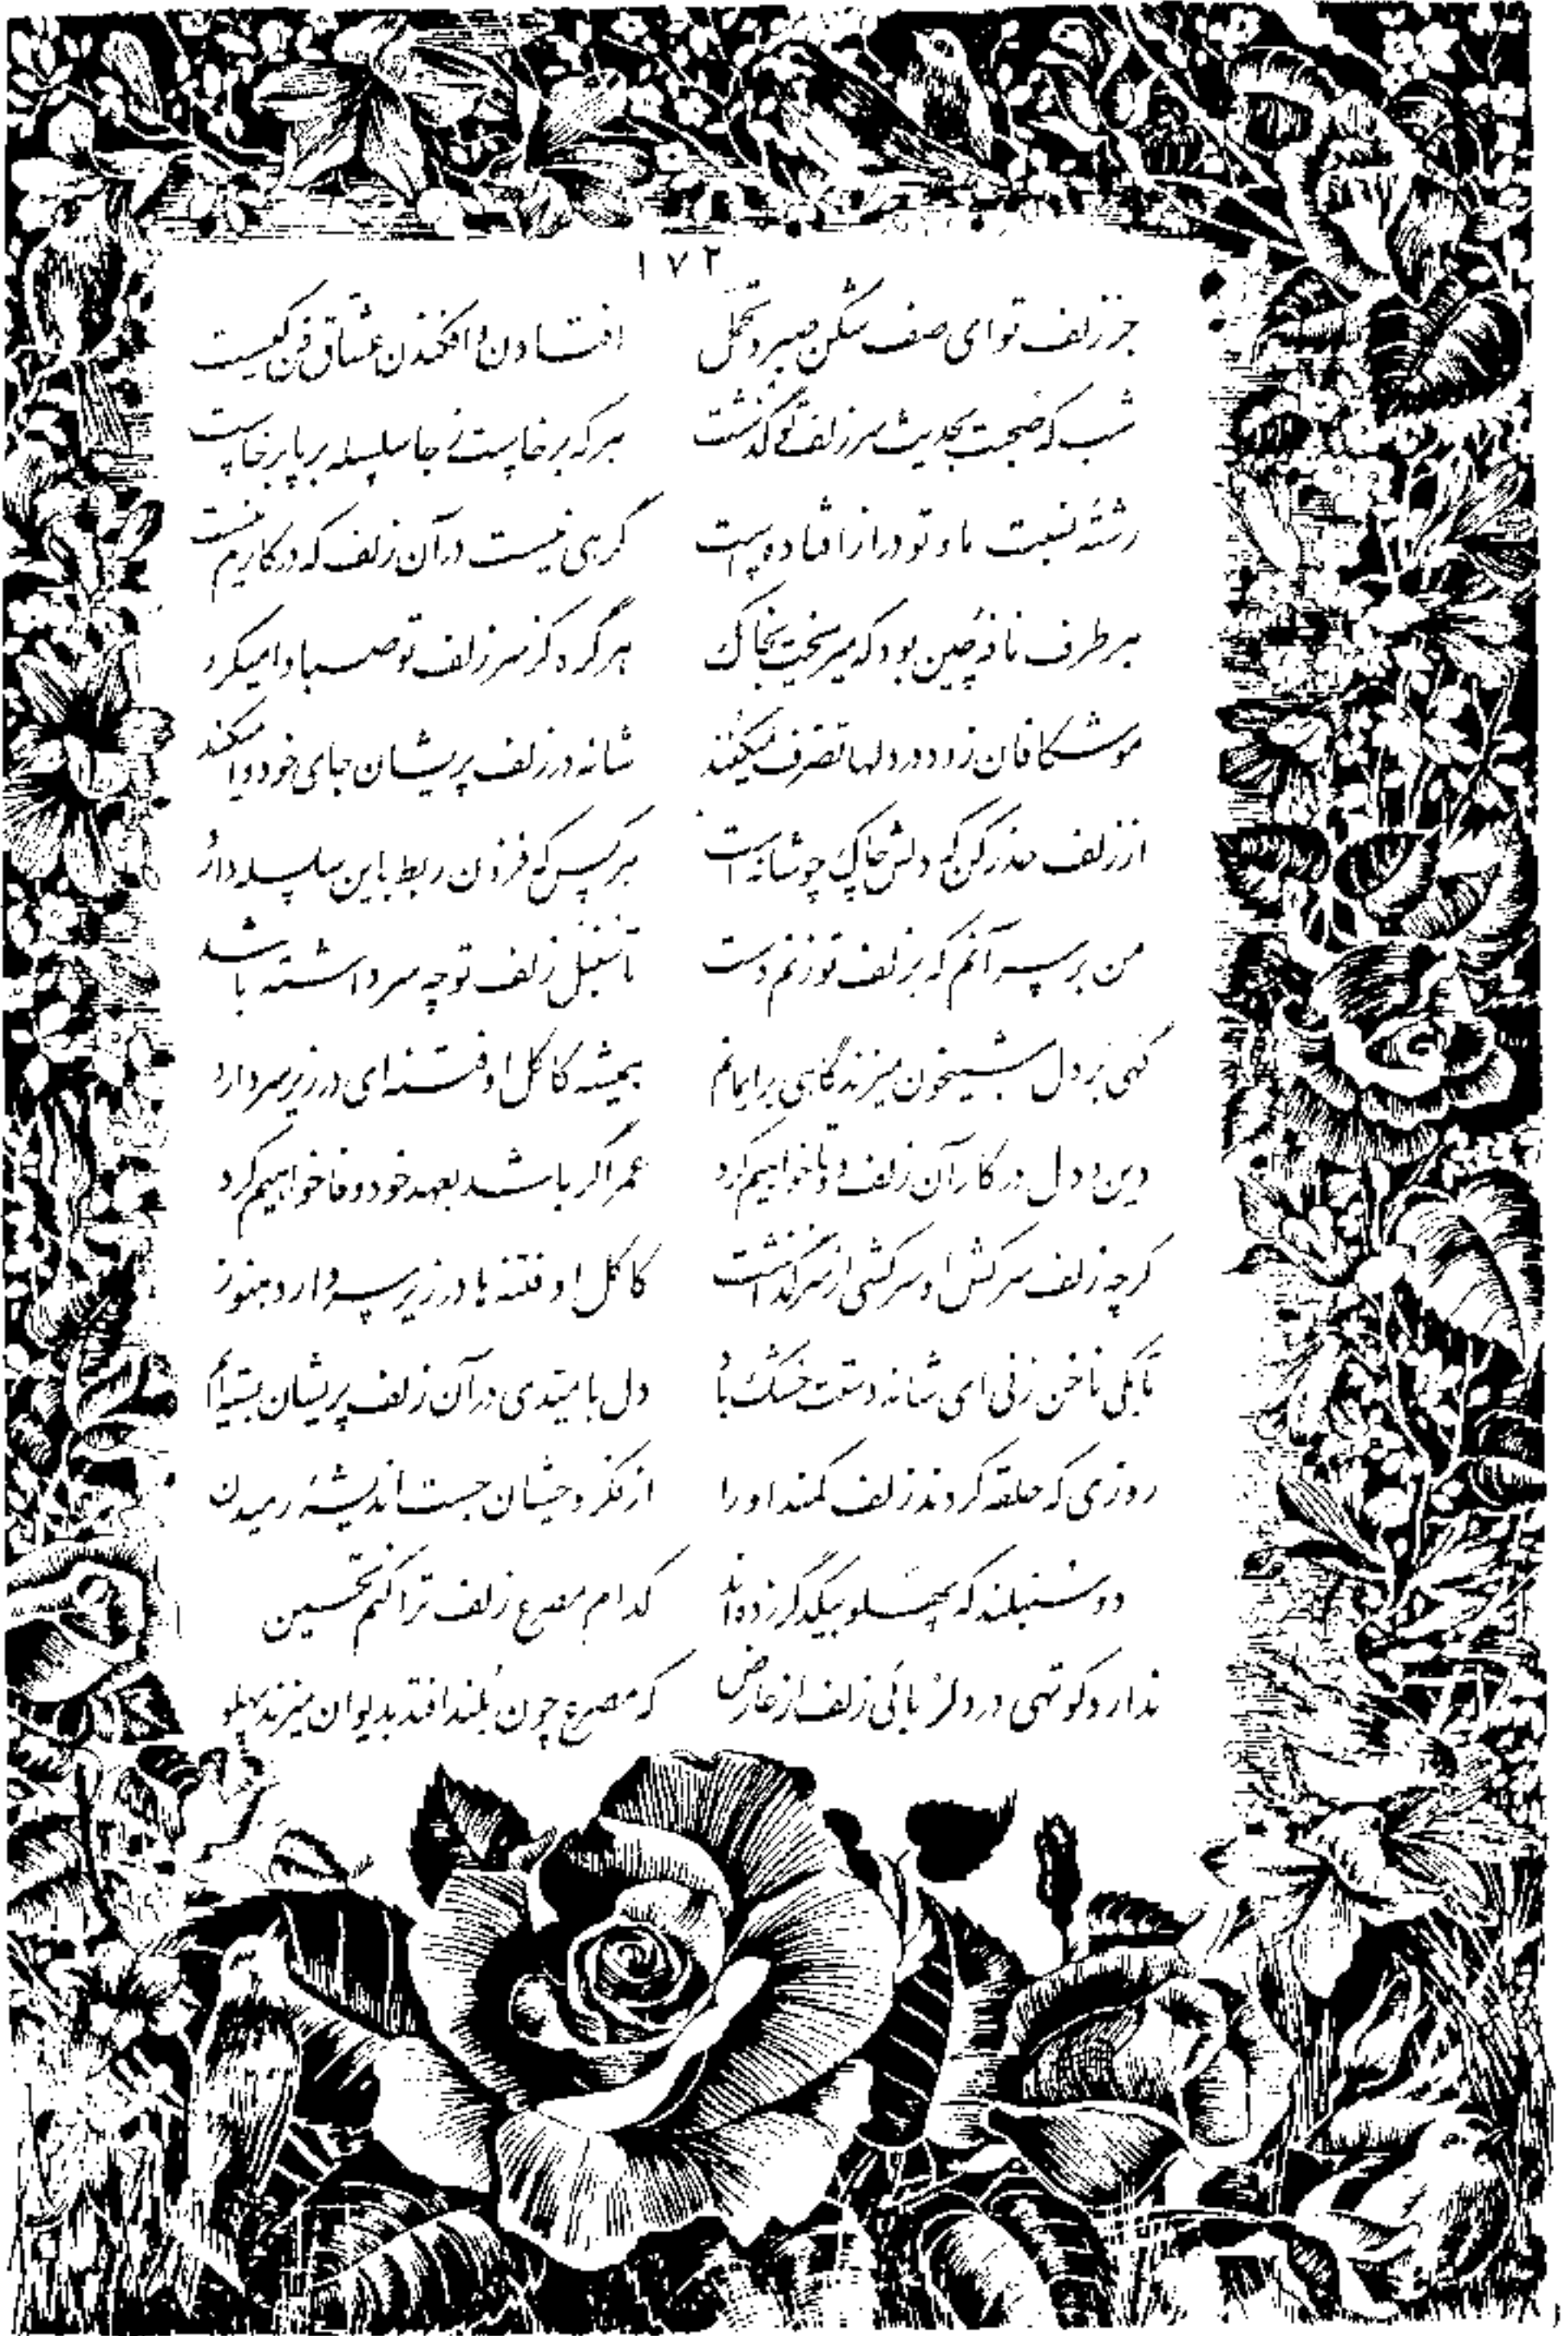 ۱۷۲
جز زلف تو ای صف شکن صبر و تحمل افتادن و افکندن عشاق فن کیست
شب که صحبت بحدیث سر زلف تو گذشت هرکه برخاست ز جا سلسله برپا برخاست
رشتهٔ نسبت ما و تو دراز افتاده است گرهی نیست در آن زلف که در کارم نیست
هر طرف نافهٔ چین بود که میریخت بخاک هر گره کز سر زلف تو صبا وا میکرد
موشکافان زود در دلها تصرف میکنند شانه در زلف پریشان جای خود وا میکند
از زلف حذر کن که دلش چاک چو شانه است هر کس که فزون ربط باین سلسله دارد
من بر سر آنم که بزلف تو زنم دست تا سنبل زلف تو چه سر داشته باشد
گهی بر دل شبیخون میزند گاهی بر ایمانم همیشه کاکل او فتنه ای در زیر سر دارد
دین و دل در کار آن زلف دوتا خواهیم کرد عمر اگر باشد بعهد خود وفا خواهیم کرد
گرچه زلف سرکش او سرکشی از سر گذاشت کاکل او فتنه ها در زیر سر دارد هنوز
تا بکی ناخن زنی ای شانه دستت خشک باد دل بامیدی در آن زلف پریشان بسته ایم
روزی که حلقه کردند زلف کمند او را از فکر وحشیان جست اندیشهٔ رمیدن
دو سنبلند که پهلو بیکدگر زده اند کدام مصرع زلف ترا کنم تحسین
ندارد کوتهی در دلربائی زلف از عارض که مصرع چون بلند افتد بدیوان میزند پهلو